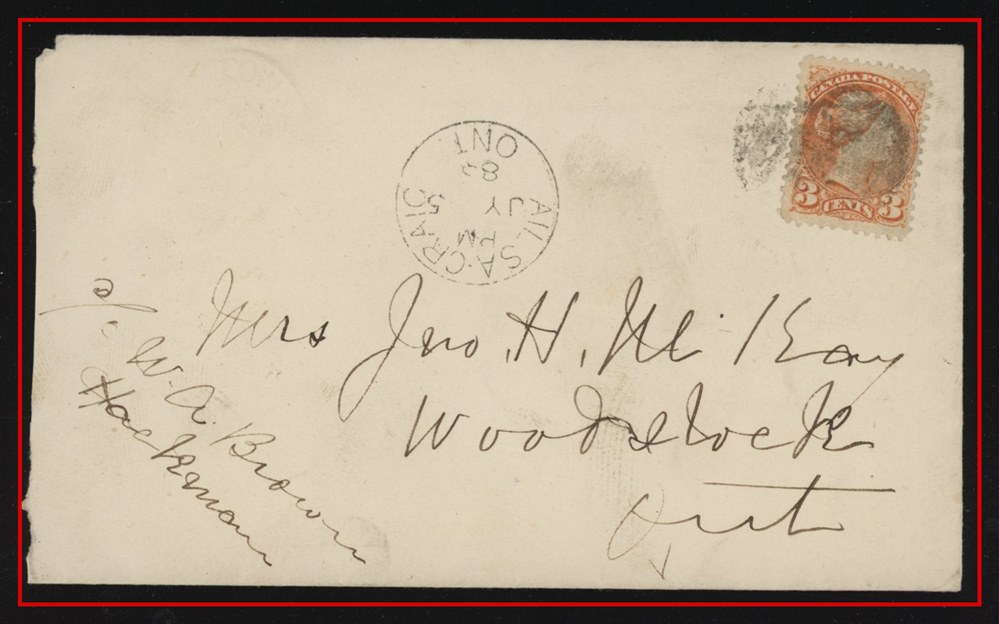 CANADA POSTAGE
3 CENTS 3
AILSA-CRAIG
PM
JY 5
82
ONT
Mrs Jno. H. Mc Kay
Woodstock
Ont
c/o. W. A. Brown
Hackman